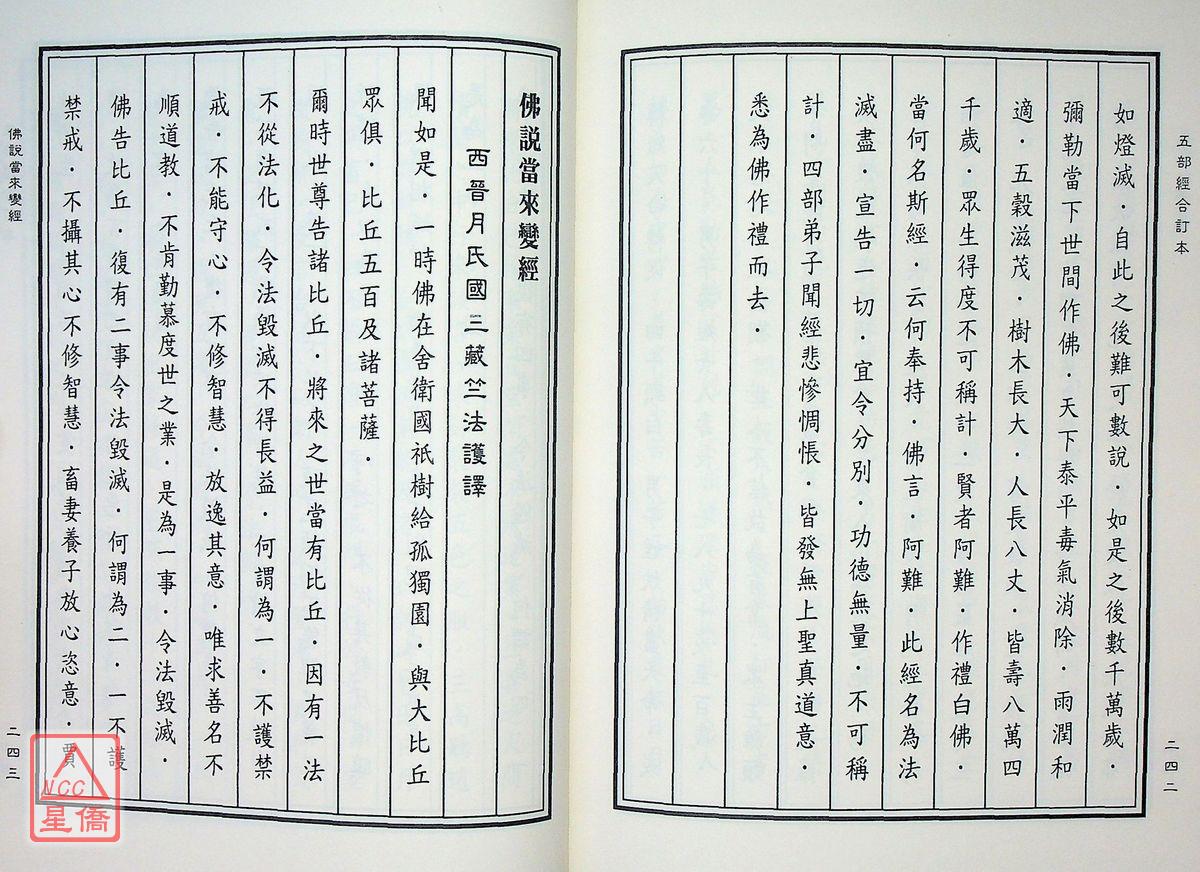 五部經合訂本
如燈滅．自此之後難可數說．如是之後數千萬歲．
彌勒當下世間作佛．天下泰平毒氣消除．雨潤和
適．五穀滋茂．樹木長大．人長八丈．皆壽八萬四
千歲．眾生得度不可稱計．賢者阿難．作禮白佛．
當何名斯經．云何奉持．佛言．阿難．此經名為法
滅盡．宣告一切．宜令分別．功德無量．不可稱
計．四部弟子聞經悲慘惆悵．皆發無上聖真道意．
悉為佛作禮而去．
二四二
佛說當來變經
西晉月氏國三藏竺法護譯
聞如是．一時佛在舍衛國祇樹給孤獨園．與大比丘
眾俱．比丘五百及諸菩薩．
爾時世尊告諸比丘．將來之世當有比丘．因有一法
不從法化．令法毀滅不得長益．何謂為一．不護禁
戒．不能守心．不修智慧．放逸其意．唯求善名不
順道教．不肯勤慕度世之業．是為一事．令法毀滅．
佛告比丘．復有二事令法毀滅．何謂為二．一不護
禁戒．不攝其心不修智慧．畜妻養子放心恣意．賈
佛說當來變經
二四三
NCC
星僑